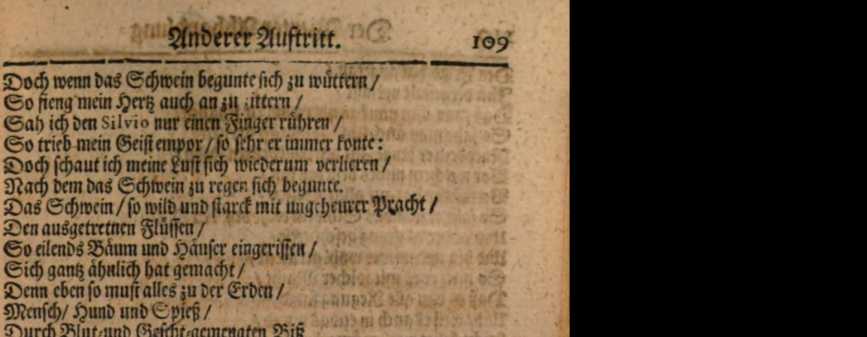 Anderer Auftritt. 109
Doch wenn das Schwein begunte sich zu wüttern /
So fieng mein Hertz auch an zu zittern /
Sah ich den Silvio nur einen Finger rühren /
So trieb mein Geist empor / so sehr er immer konte:
Doch schaut ich meine Lust sich wiederum verlieren /
Nach dem das Schwein zu regen sich begunte.
Das Schwein / so wild und starck mit ungeheurer Pracht /
Den ausgetretnen Flüssen /
So eilends Bäum und Häuser eingerissen /
Sich gantz ähnlich hat gemacht /
Denn eben so must alles zu der Erden /
Mensch / Hund und Spieß /
Durch Blut- und Gescht-gemengten Biß